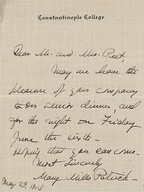 Constantinople College
Dear Mr. and Mrs. Peet,
May we have the
pleasure of your company
to our Senior dinner and
for the night on Friday
June the sixth.
Hoping that you can come,
Most sincerely
Mary Mills Patrick.
May 29,